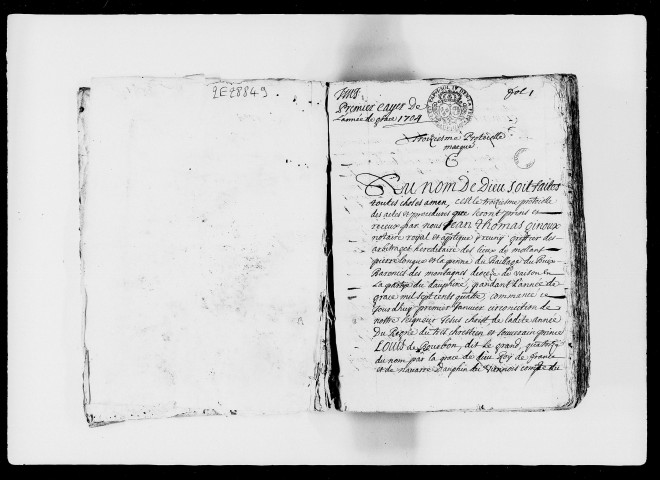 2E28849
fol 1
Premier cayer de
L'année de grace 1704
Troizesme Protocolle
marqué
C
Au nom De Dieu soit faites
toutes choses amen, c'est le troizesme protocolle
des actes et procedures que seront prises et
receus par nous Jean Thomas Oinoux
notaire royal et apostlique greffier des
arbitrages hereditaire des lieux de mollans
pierrelongue et la penne du Bailliage du Buix
Baronies des montagnes dioceze de vaison en
La province du dauphiné, pandant L'année de
grace mil sept cents quatre, commancé ce
Jourdhuy premier Janvier circoncision de
nostre seigneur Jesus christ de ladite année
Du Regne de tres chrestien et souverain prince
LOUIS de Bourbon, dit le grand, quatorze
du nom par la grace de dieu Roy de france
et de navarre Dauphin du viennois compte du